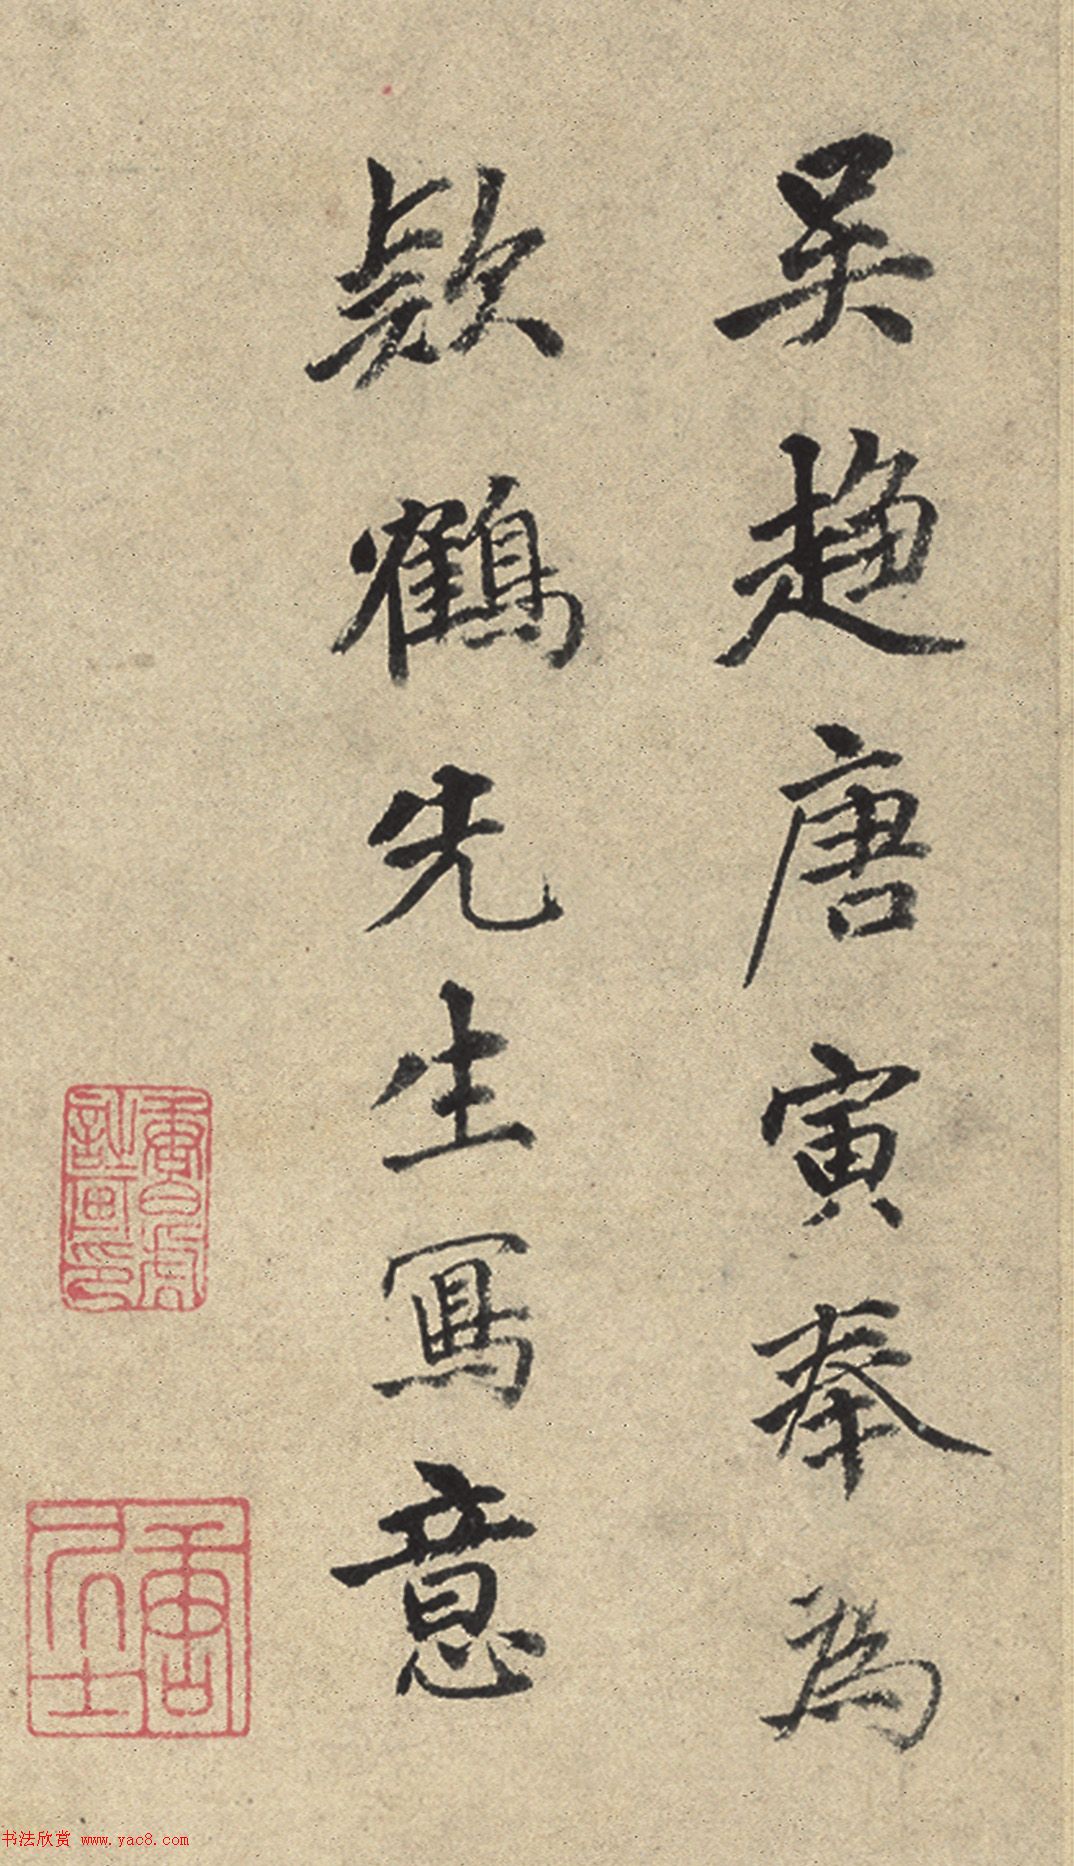 吴趋唐寅奉為
款鶴先生寫意
唐人士
书法欣赏 www.yac8.com